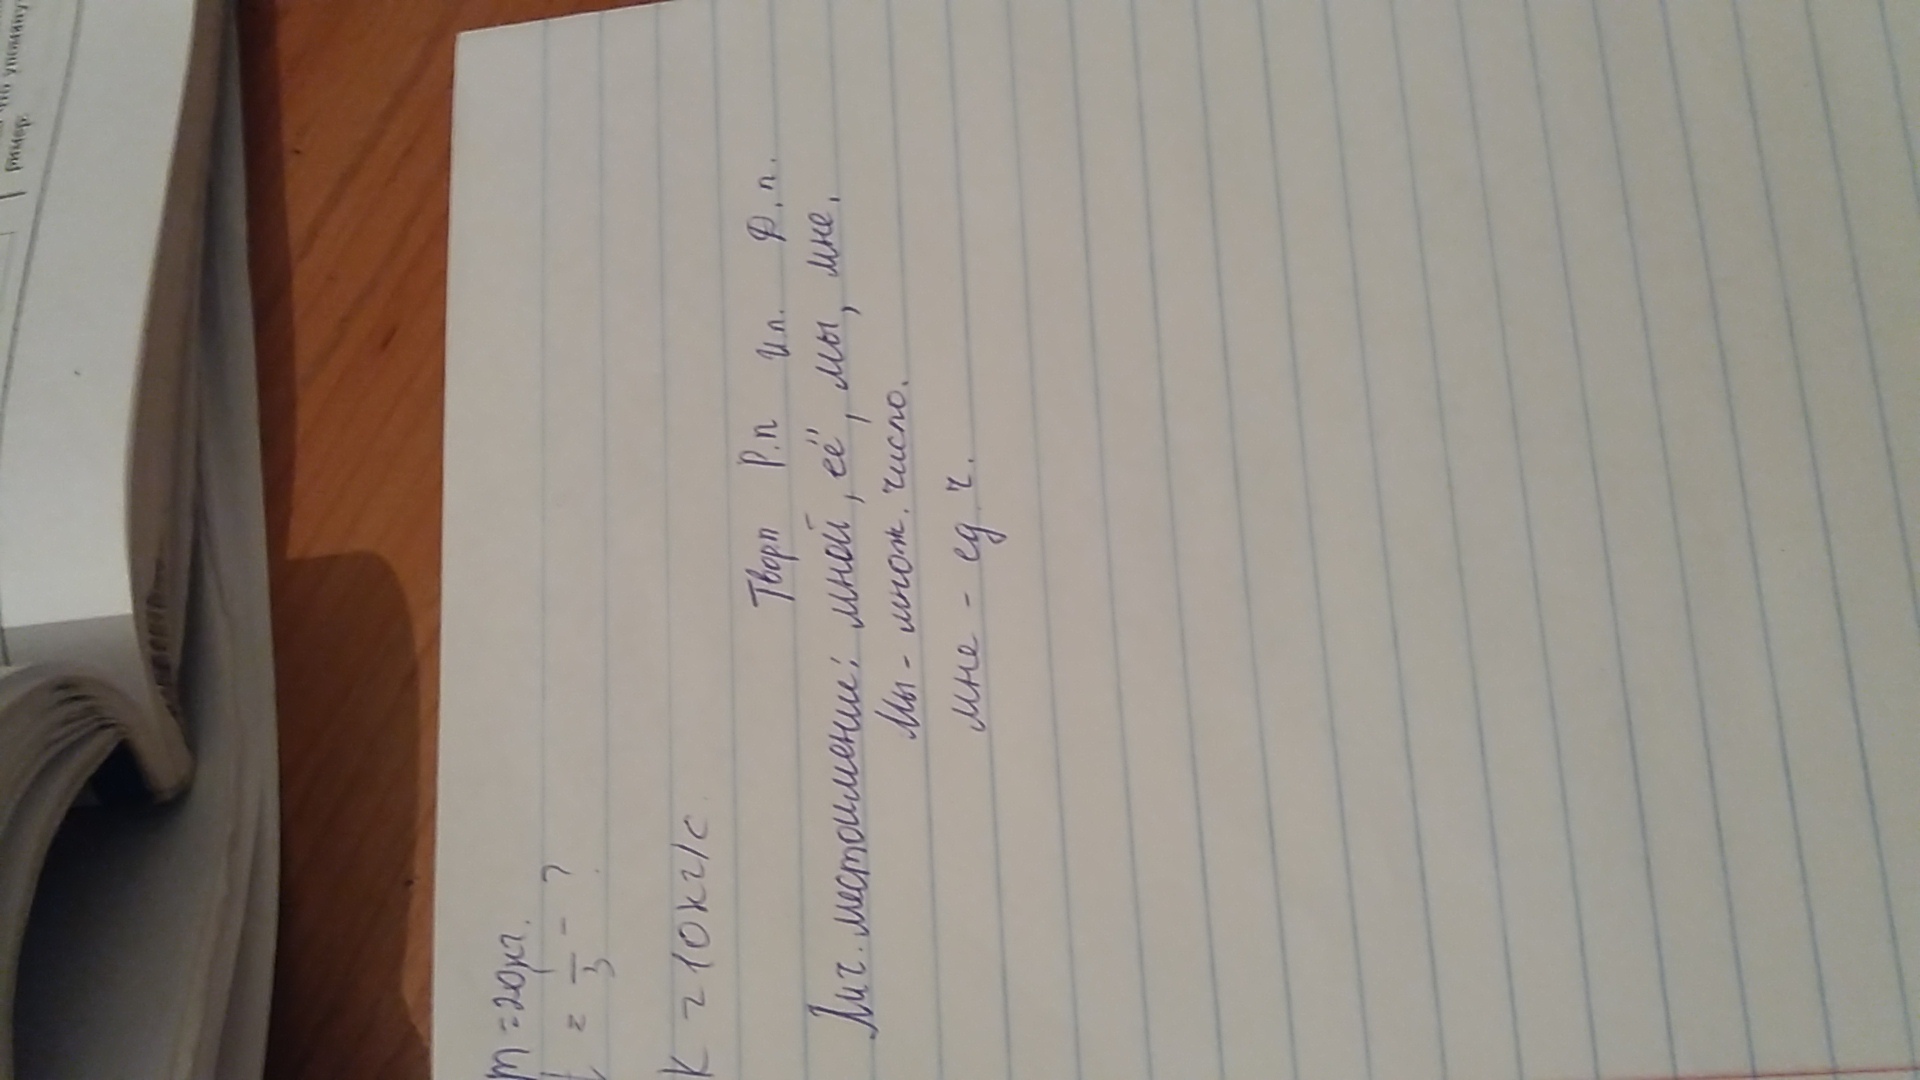 m = 20 кг.
t = 1/3 - ?
K = 10 кг/с
Твор.п Р.п И.п. Д.п.
Лич. местоимение: мной, её, мы, мне.
Мы - множ. число.
мне - ед ч.